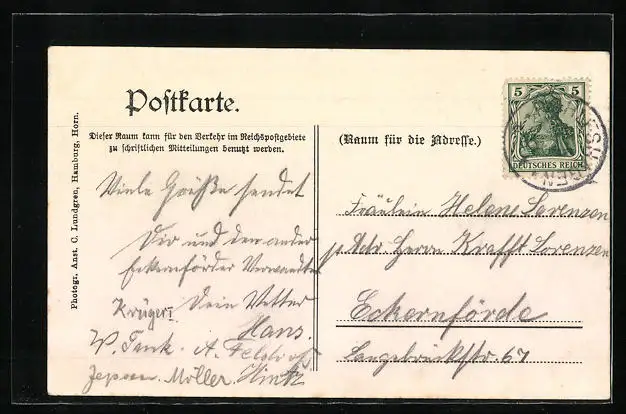 Postkarte.
Dieser Raum kann für den Verkehr im Reichspostgebiete
zu schriftlichen Mitteilungen benutzt werden.
(Raum für die Adresse.)
Photogr. Anst. C. Lundgren, Hamburg, Horn.
5 5
DEUTSCHES REICH
Viele Grüße sendet
Dir und den
Eckernförder Verwandten
Dein Vetter
Hans.
Krüger I
W. Tank. A.
Jepsen. Möller. Hintz
Fräulein Helene Lorenzen
Adr. Herrn Krafft Lorenzen
Eckernförde
Langebrückstr. 67